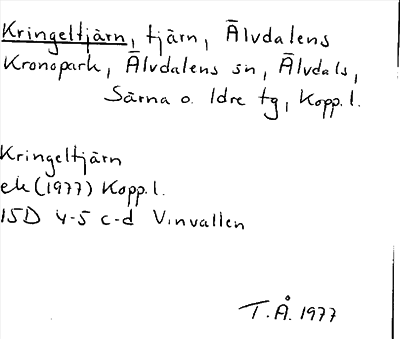 Kringeltjärn, tjärn, Älvdalens
Kronopark, Älvdalens sn, Älvdals,
Särna o. Idre tg, Kopp. l.
Kringeltjärn
ek (1977) Kopp. l.
15D 4-5 c-d Vinvallen
T. Å. 1977